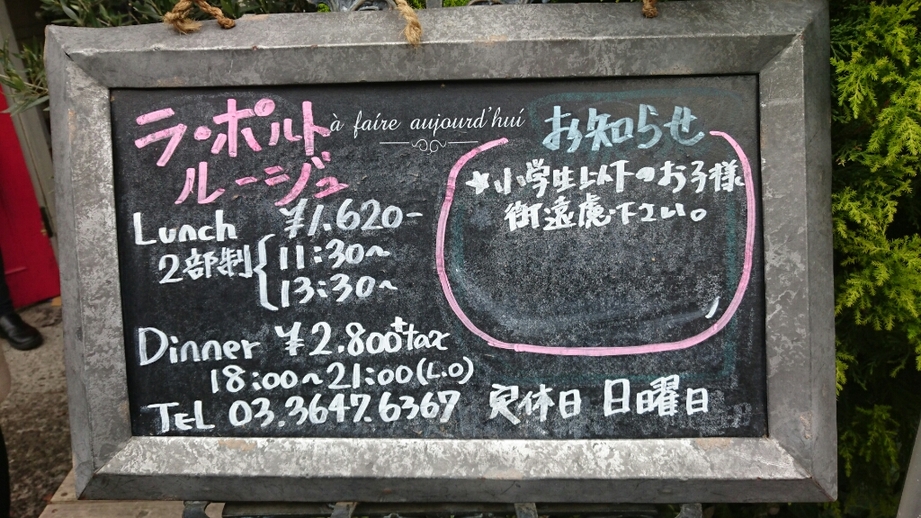 ラ・ポルト
ルージュ
à faire aujourd'hui
Lunch ¥1.620-
2部制{11:30〜
13:30〜
Dinner ¥2.800+tax
18:00〜21:00(L.O)
TEL 03.3647.6367
お知らせ
★小学生以下のお子様
御遠慮下さい。
定休日 日曜日